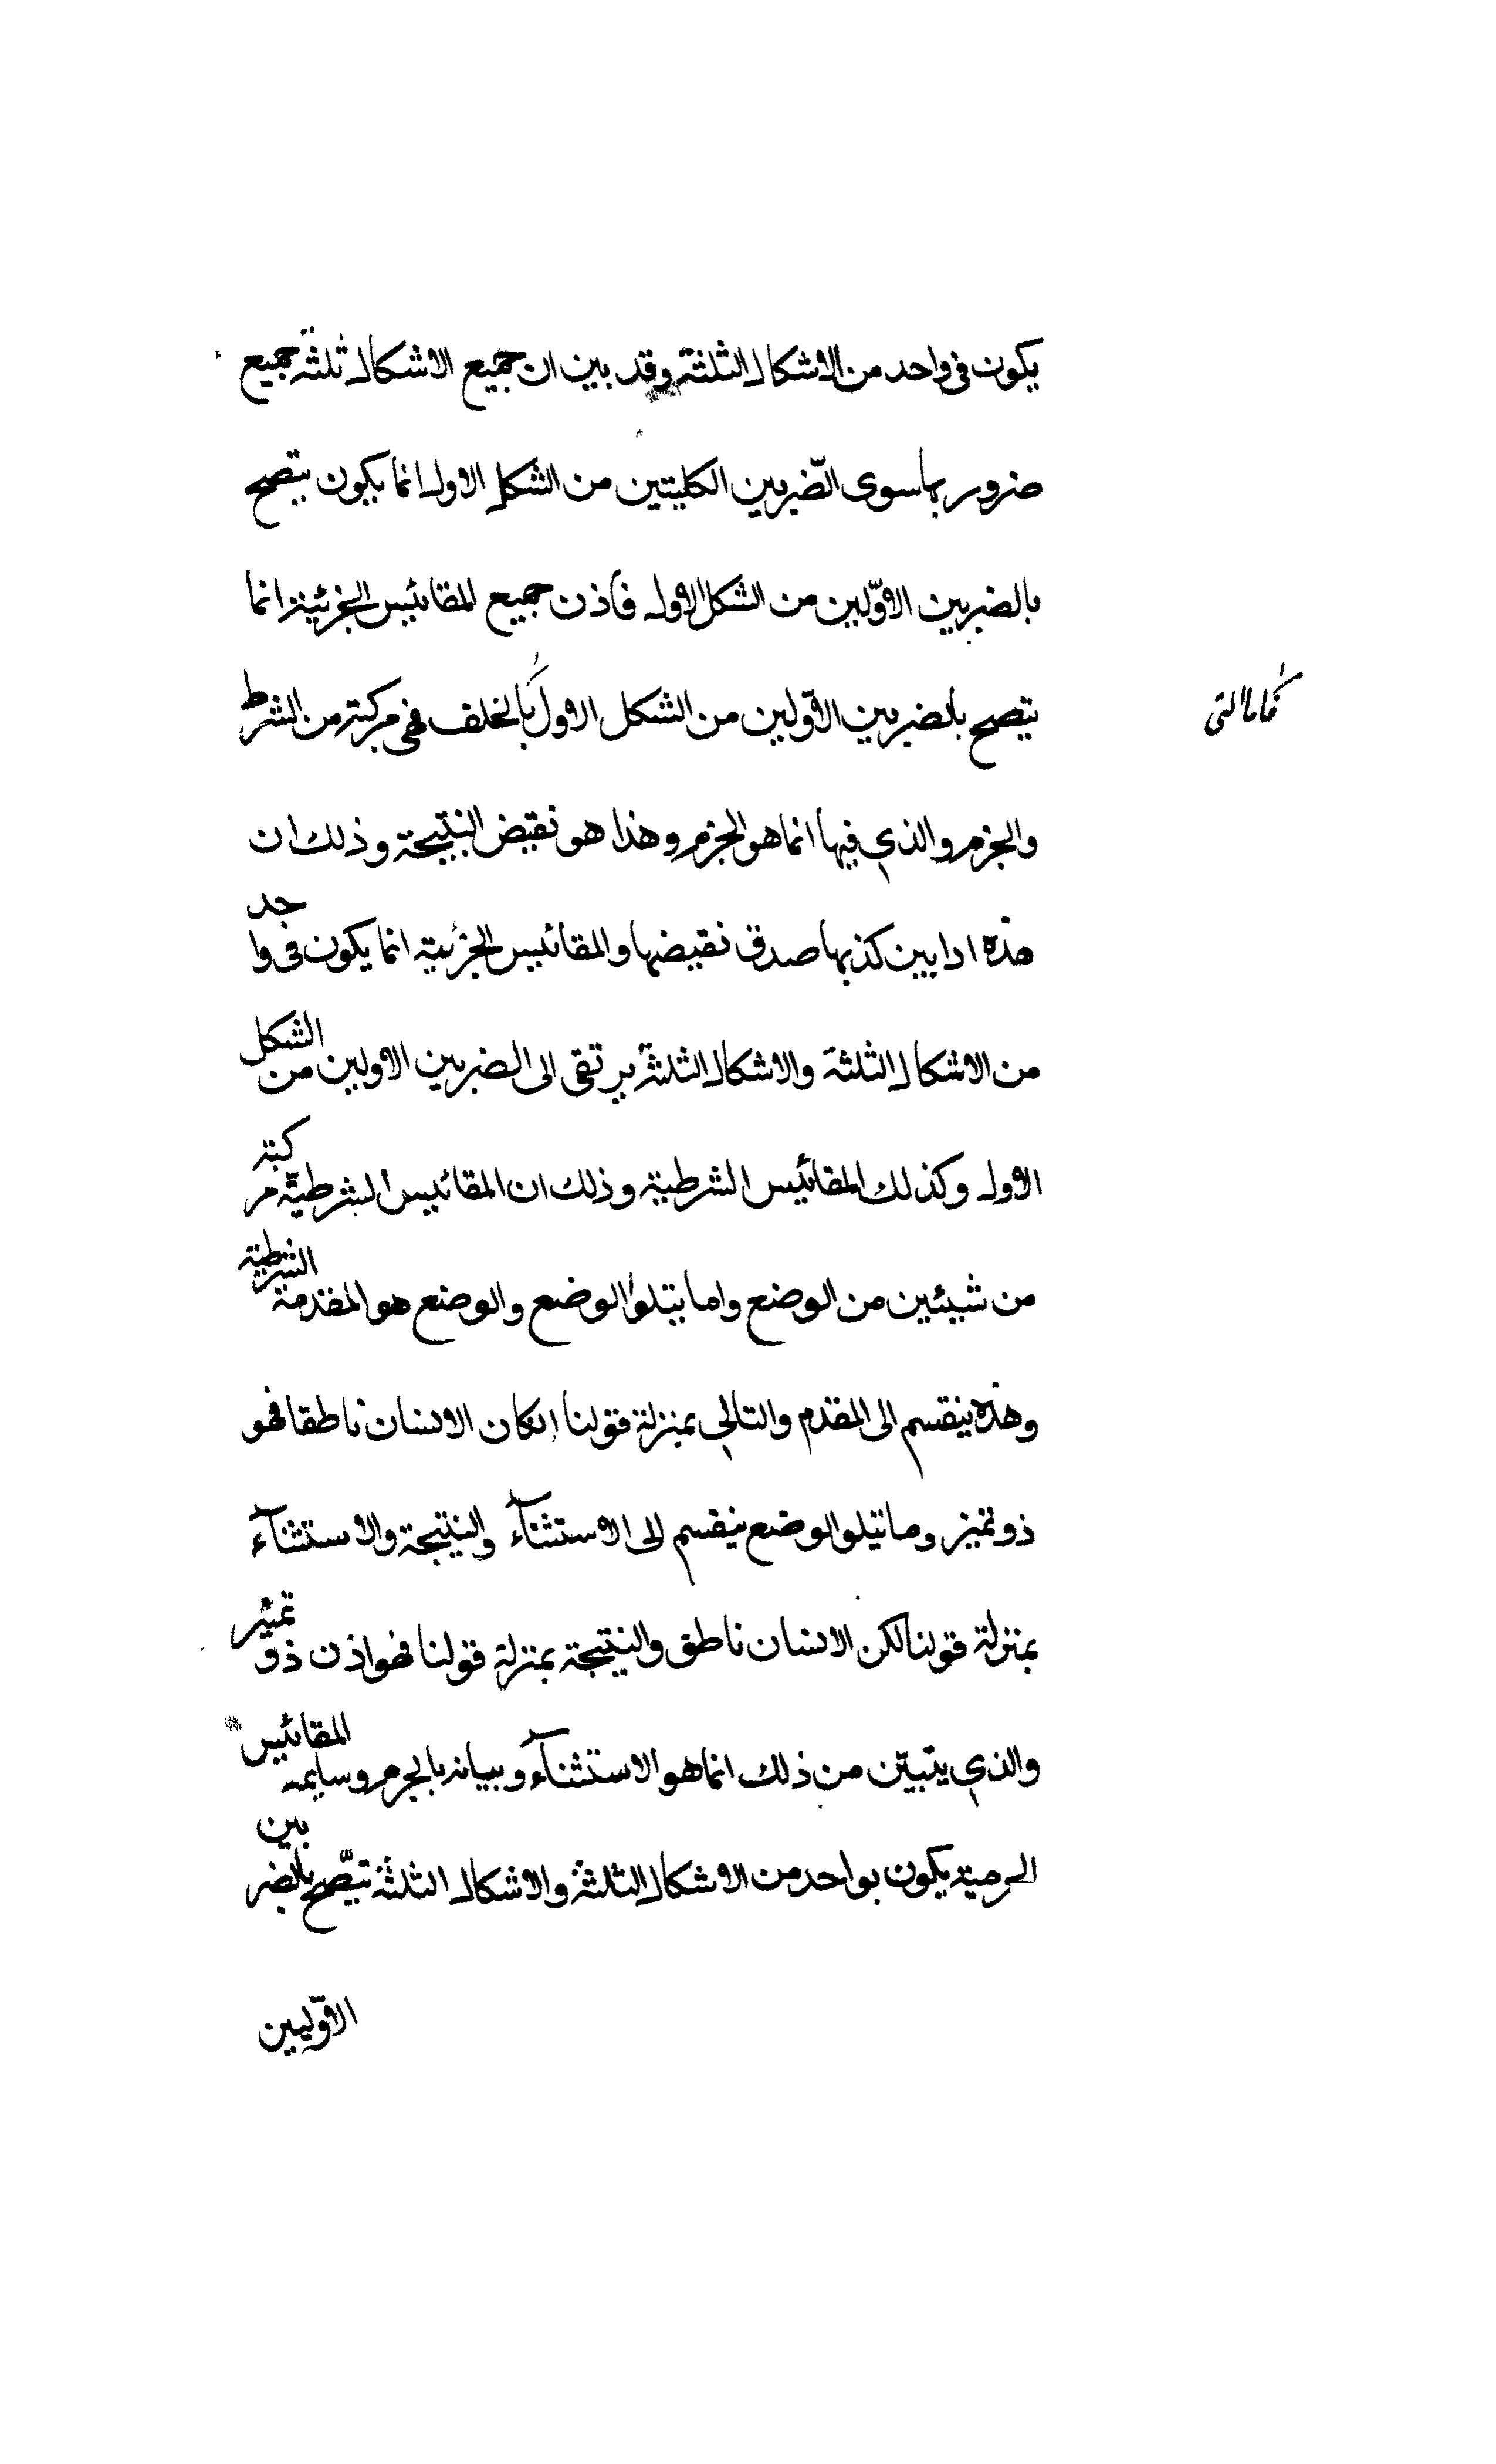 يكون فى واحد من الاشكال الثلثة وقد بين ان جميع الاشكال ثلثة جميع
ضروربها سوى الضربين الكليتين من الشكل الاول انما يكون يتصحح
بالضربين الاوّلين من الشكل الاول فاذن جميع المقائيس الجزئية انما
يتصحح بالضربين الاوّلين من الشكل الاول بالخلف فهى مركبة من الشرط
فاما التى
والجزم والذي فيها انما هو الجزم وهذا هو نقيض النتيجة وذلك ان
هذه اذا بين كذبها صدق نقيضها والمقائيس الجزئية انما يكون فى واحد
من الاشكال الثلثة والاشكال الثلثة يرتقى الى الضربين الاولين من الشكل
الاول وكذلك المقائيس الشرطية وذلك ان المقائيس الشرطيّة مركبة
من شيئين من الوضع واما يتلوا الوضع والوضع هو المقدمة الشرطية
وهذه ينقسم الى المقدم والتالي بمنزلة قولنا ان كان الانسان ناطقا فهو
ذو تميز وما تيلو الوضع ينقسم الى الاستثنآء والنتيجة والاستثنآء
بمنزلة قولنا لكن الانسان ناطق والنتيجة بمنزلة قولنا فهو اذن ذو تميز
والذي يتبيّن من ذلك انما هو الاستثنآء وبيانه بالجزم وسايمه المقائيس
يكون بواحد من الاشكال الثلثة والاشكال الثلثة تيصّحح بالضربين
الاوّليين